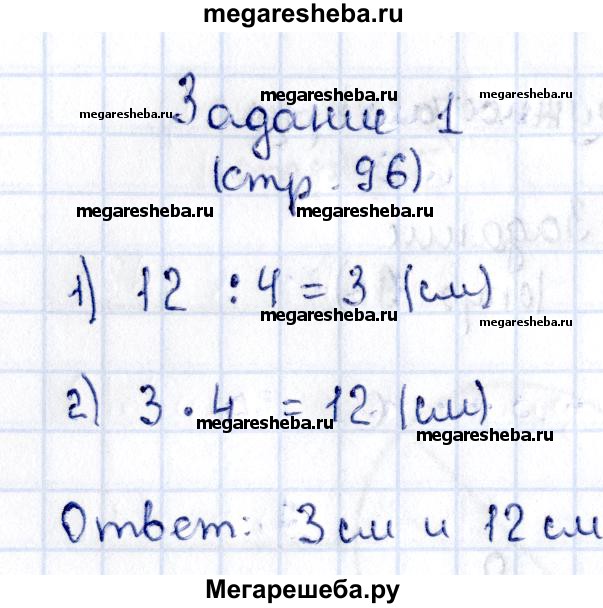 megaresheba.ru
megaresheba.ru megaresheba.ru megaresheba.ru
Задание 1
(стр. 96)
megaresheba.ru megaresheba.ru
1) 12 : 4 = 3 (см)
megaresheba.ru megaresheba.ru
2) 3 · 4 = 12 (см)
megaresheba.ru megaresheba.ru
Ответ: 3 см и 12 см
Мегарешеба.ру